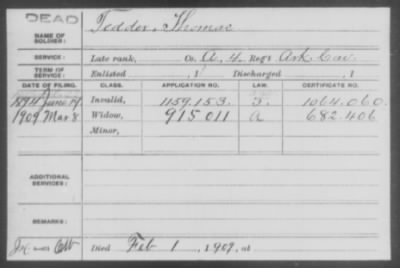 DEAD
NAME OF SOLDIER: Tedder, Thomas
SERVICE: Late rank, Co. A, 4 Reg't Ark Cav.
TERM OF SERVICE: Enlisted , 1 Discharged , 1
DATE OF FILING. CLASS. APPLICATION NO. LAW. CERTIFICATE NO.
1894 June 19 Invalid, 1159.153. 1064.060.
1909 Mar 8 Widow, 915011 a 682.406
Minor,
ADDITIONAL SERVICES:
REMARKS:
Died Feb 1, 1909, at